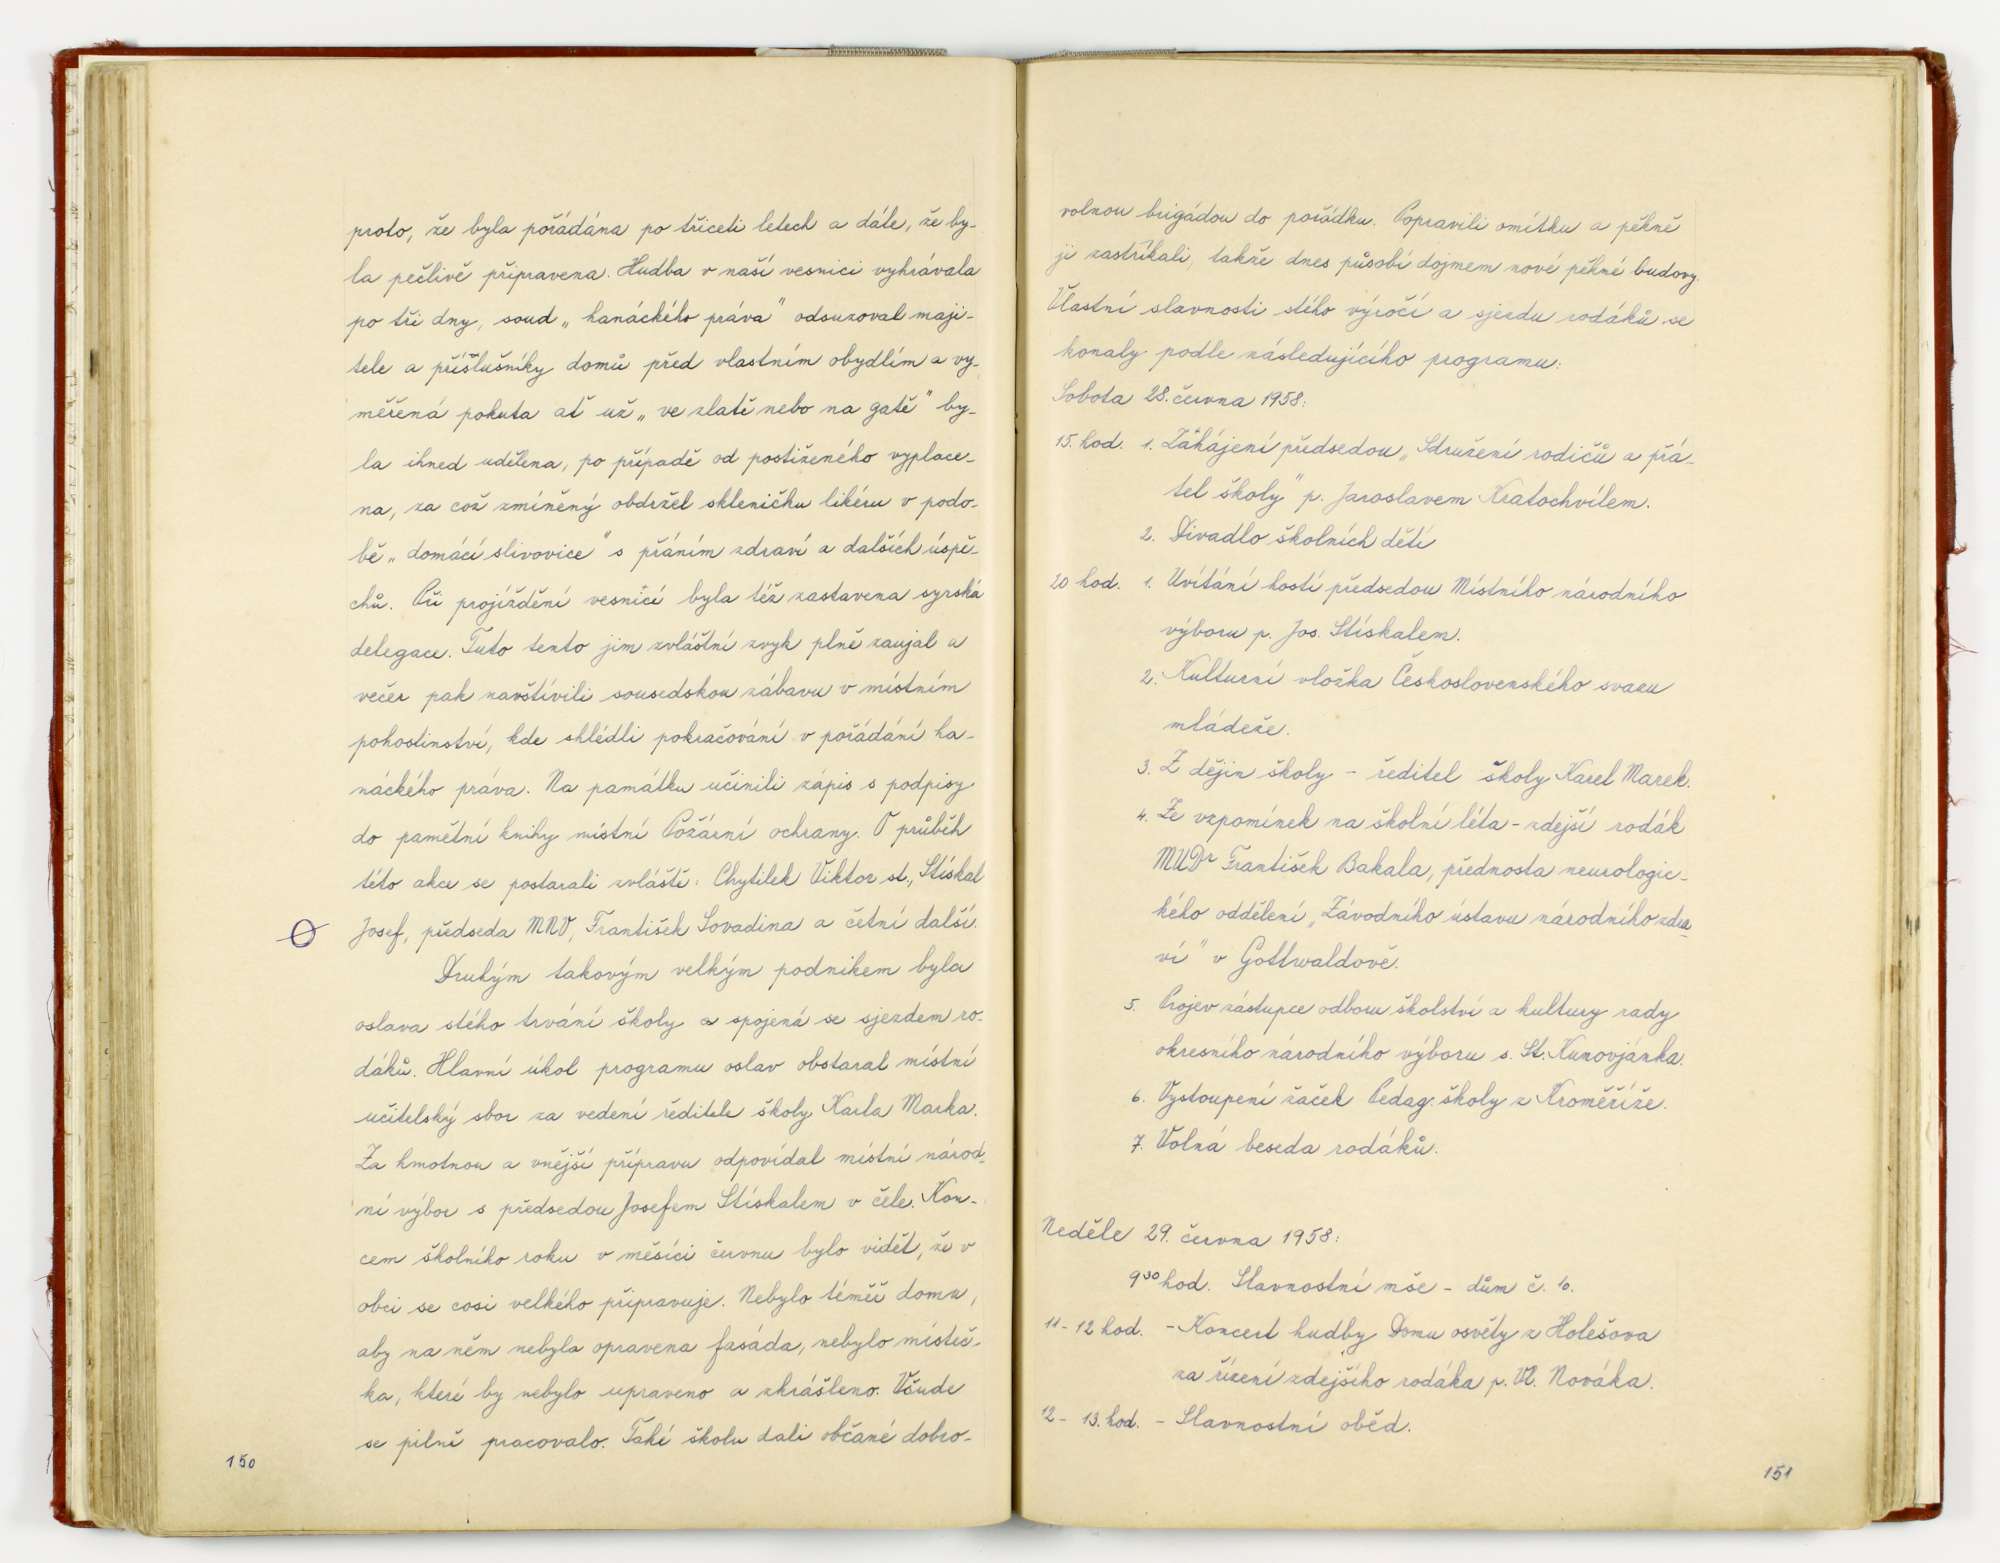 proto, že byla pořádána po třiceti letech a dále, že by-
la pečlivě připravena. Hudba v naší vesnici vyhrávala
po tři dny, soud „hanáckého práva" odsuzoval maji-
tele a příšlušníky domů před vlastním obydlím a vy-
měřená pokuta ať už „ve zlatě nebo na gatě" by-
la ihned udělena, po případě od postiženého vyplace-
na, za což zmíněný obdržel skleničku likéru v podo-
bě „domácí slivovice" s přáním zdraví a dalších úspě-
chů. Při projíždění vesnicí byla též zastavena syrská
delegace. Tuto tento jim zvláštní zvyk plně zaujal a
večer pak navštívili sousedskou zábavu v místním
pohostinství, kde shlédli pokračování v pořádání ha-
náckého práva. Na památku učinili zápis s podpisy
do pamětní knihy místní Požární ochrany. O průběh
této akce se postarali zvláště: Chytilek Viktor st., Stískal
Josef, předseda MNV, František Sovadina a četní další.
Druhým takovým velkým podnikem byla
oslava stého trvání školy a spojená se sjezdem ro-
dáků. Hlavní úkol programu oslav obstaral místní
učitelský sbor za vedení ředitele školy Karla Marka.
Za hmotnou a vnější přípravu odpovídal místní národ-
ní výbor s předsedou Josefem Stískalem v čele. Kon-
cem školního roku v měsíci červnu bylo vidět, že v
obci se cosi velkého připravuje. Nebylo téměř domu,
aby na něm nebyla opravena fasáda, nebylo místeč-
ka, které by nebylo upraveno a zkrášleno. Všude
se pilně pracovalo. Také školu dali občané dobro-
150
volnou brigádou do pořádku. Popravili omítku a pěkně
ji zastříkali, takže dnes působí dojmem nové pěkné budovy.
Vlastní slavnosti stého výročí a sjezdu rodáků se
konaly podle následujícího programu:
Sobota 28. června 1958:
15. hod. 1. Zahájení předsedou „Sdružení rodičů a přá-
tel školy" p. Jaroslavem Kratochvílem.
2. Divadlo školních dětí
20 hod. 1. Uvítání hostí předsedou Místního národního
výboru p. Jos. Stískalem.
2. Kulturní vložka Československého svazu
mládeže.
3. Z dějin školy - ředitel školy Karel Marek.
4. Ze vzpomínek na školní léta - zdejší rodák
MUDr František Bakala, přednosta neurologic-
kého oddělení „Závodního ústavu národního zdra-
ví" v Gottwaldově.
5. Projev zástupce odboru školství a kultury rady
okresního národního výboru s. St. Kunovjánka.
6. Vystoupení žaček Pedag. školy z Kroměříže.
7. Volná beseda rodáků.
Neděle 29. června 1958:
9³⁰ hod. Slavnostní mše - dům č. 10.
11 - 12 hod. - Koncert hudby Domu osvěty z Holešova
za řízení zdejšího rodáka p. Vl. Nováka.
12 - 13. hod. - Slavnostní oběd.
151